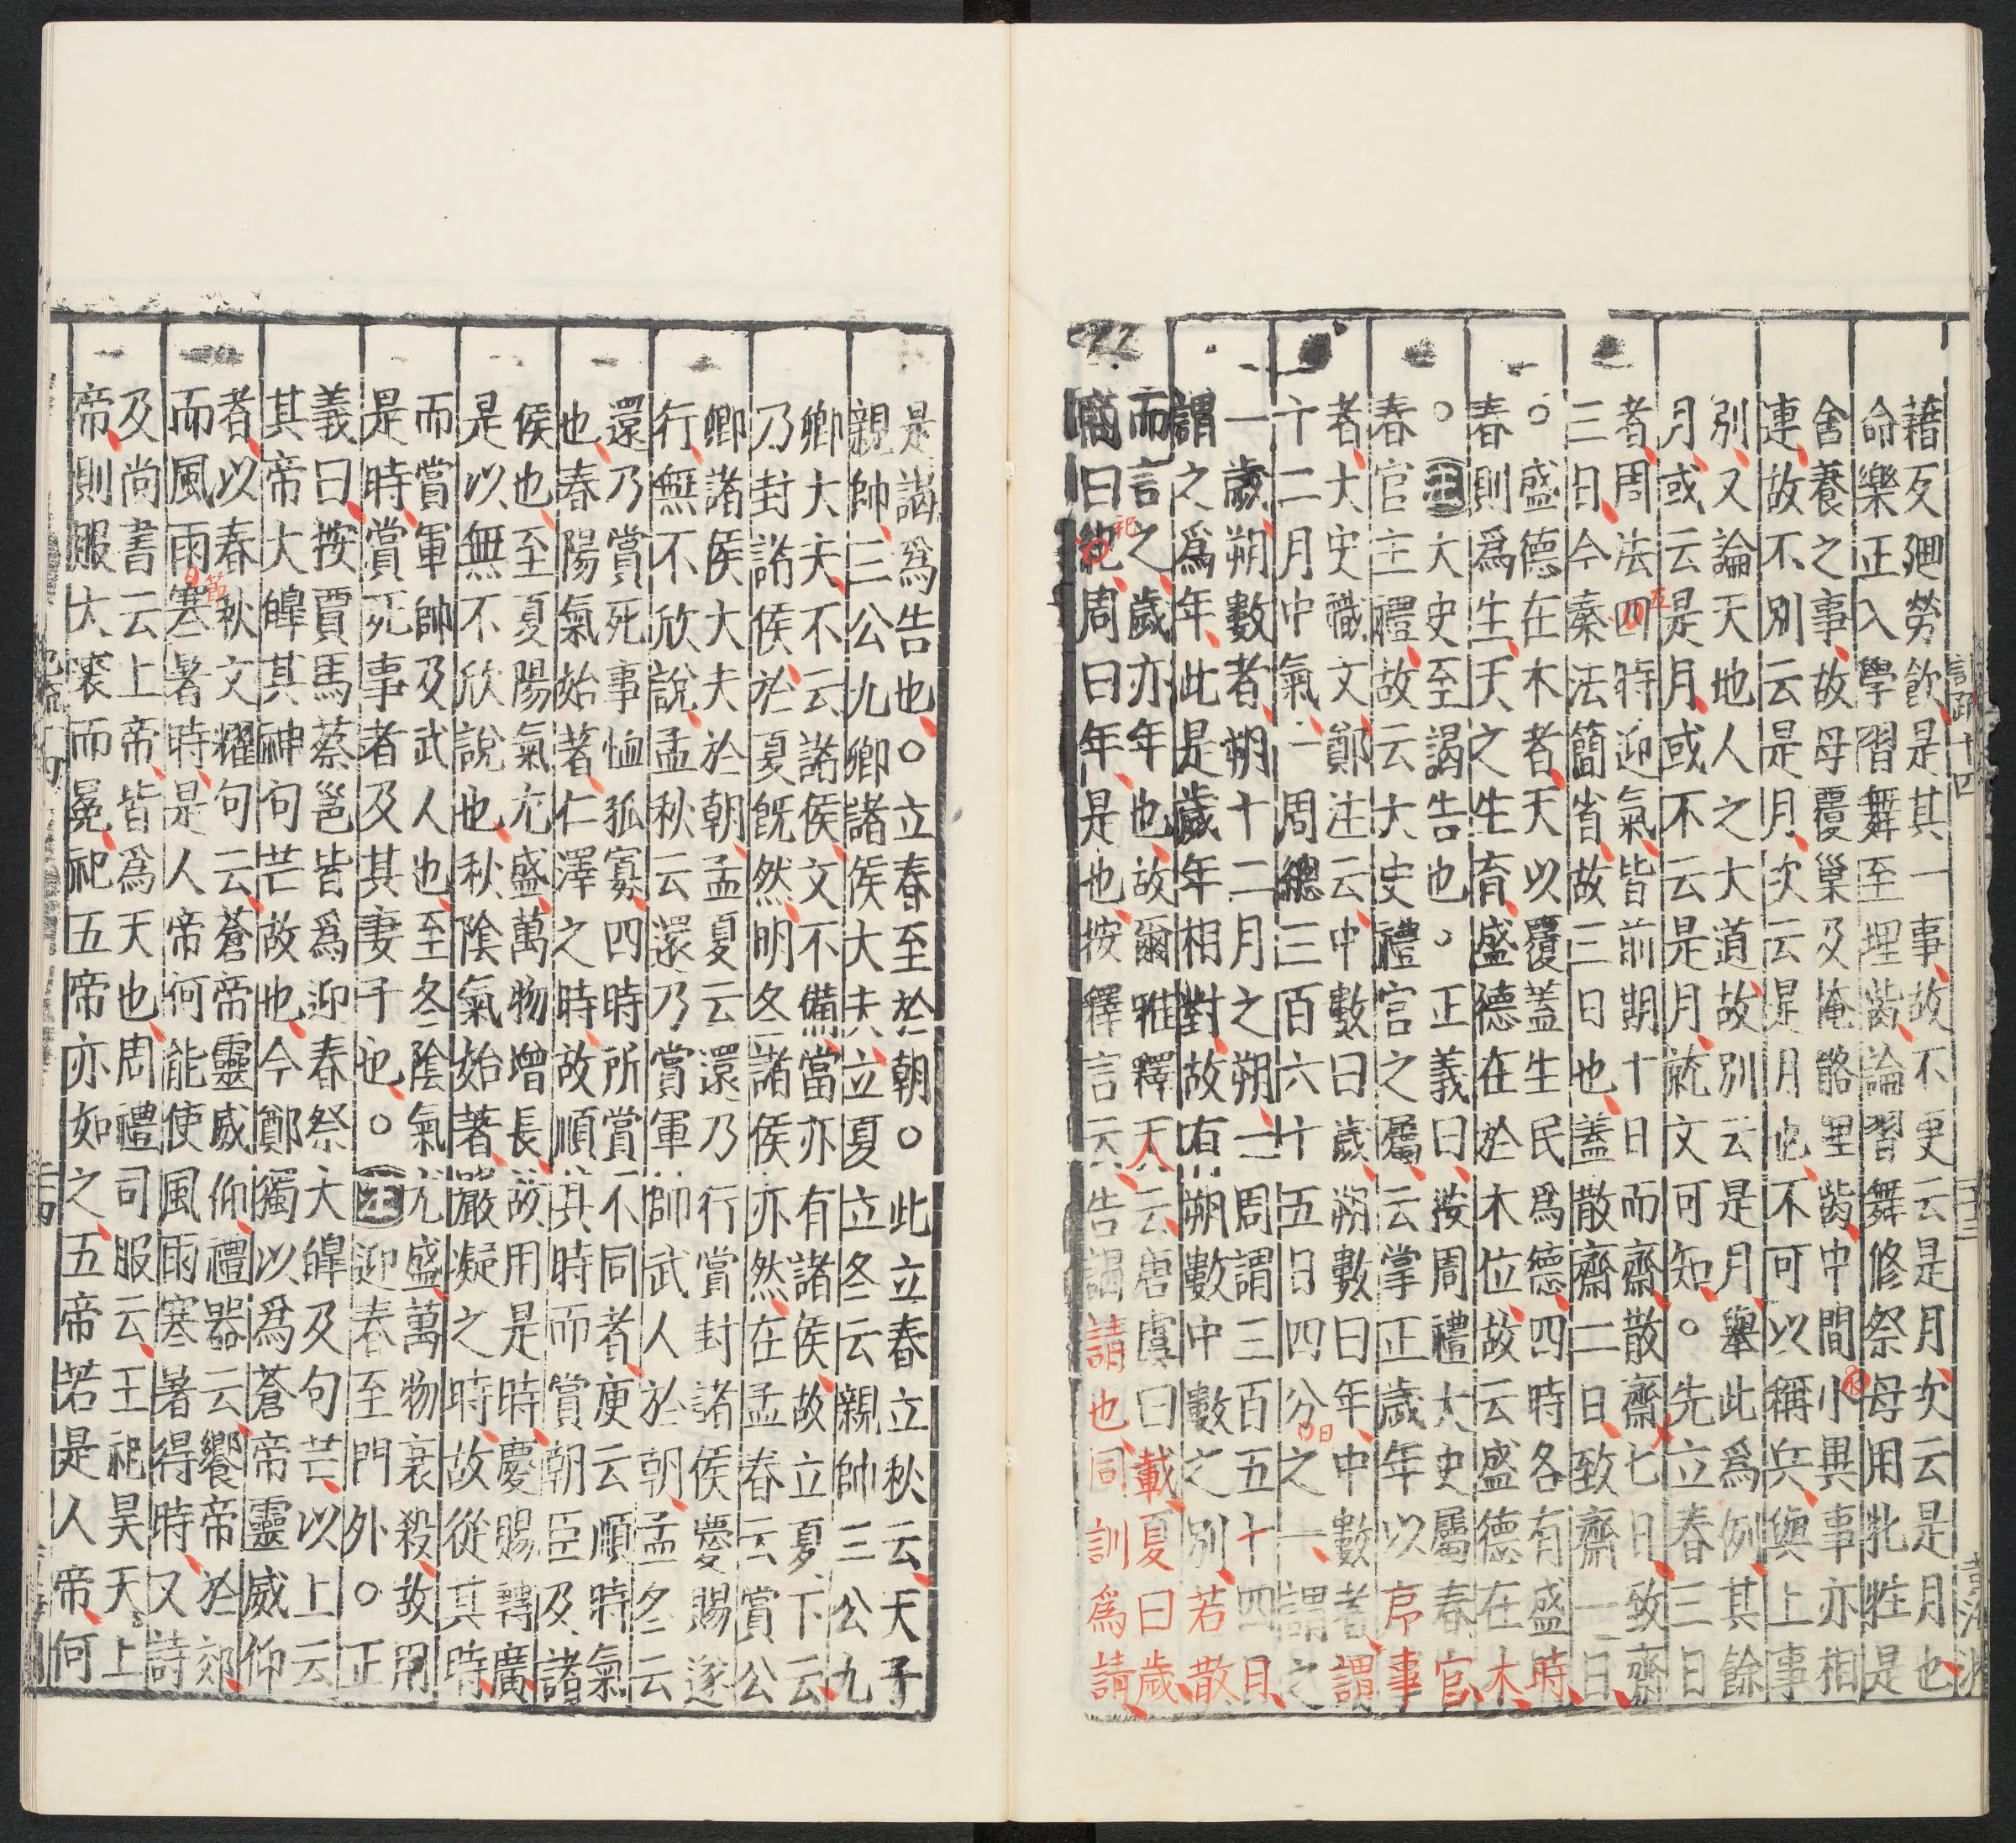 藉反廻勞飲是其一事故不更云是月次云是月也
命樂正入學習舞至埋胔論習舞修祭母用牝牲是
舍養之事故母覆巢及掩骼埋胔中間小異事亦相
連故不別云是月次云是月也不可以稱兵與上事
別又論天地人之大道故別云是月舉此爲例其餘
月或云是月或不云是月就文可知○先立春三日
者周法四時迎氣皆前期十日而齋散齋七日致齋
三日今秦法簡省故三日也蓋散齋二日致齋一日
○盛德在木者天以覆蓋生民爲德四時各有盛時
春則爲生天之生育盛德在於木位故云盛德在木
○注大史至謁告也○正義曰按周禮大史屬春官
春官主禮故云大史禮官之屬云掌正歲年以序事
者大史職文鄭注云中數曰歲朔數曰年中數者謂
十二月中氣一周總三百六十五日四分之一謂之
一歲朔數者朔十二月之朔一周謂三百五十四日
謂之爲年此是歲年相對故有朔數中數之別若散
而言之歲亦年也故爾雅釋天云唐虞曰載夏曰歲
商曰祀周曰年是也按釋言云告謁請也同訓爲請
是謁爲告也○立春至於朝○此立春立秋云天子
親帥三公九卿諸侯大夫立夏立冬云親帥三公九
卿大夫不云諸侯文不備當亦有諸侯故立夏下云
乃封諸侯於夏旣然明冬諸侯亦然在孟春云賞公
卿諸侯大夫於朝孟夏云還乃行賞封諸侯慶賜遂
行無不欣說孟秋云還乃賞軍帥武人於朝孟冬云
還乃賞死事恤孤寡四時所賞不同者庾云順時氣
也春陽氣始著仁澤之時故順其時而賞朝臣及諸
侯也至夏陽氣尤盛萬物增長故用是時慶賜轉廣
是以無不欣說也秋陰氣始著嚴凝之時故從其時
而賞軍帥及武人也至冬陰氣尤盛萬物衰殺故用
是時賞死事者及其妻子也○注迎春至門外○正
義曰按賈馬蔡邕皆爲迎春祭大皥及句芒以上云
其帝大皥其神句芒故也今鄭獨以爲蒼帝靈威仰
者以春秋文耀句云蒼帝靈威仰禮器云饗帝於郊
而風雨寒暑時是人帝何能使風雨寒暑得時又詩
及尚書云上帝皆爲天也周禮司服云王祀昊天上
帝則服大裘而冕祀五帝亦如之五帝若是人帝何